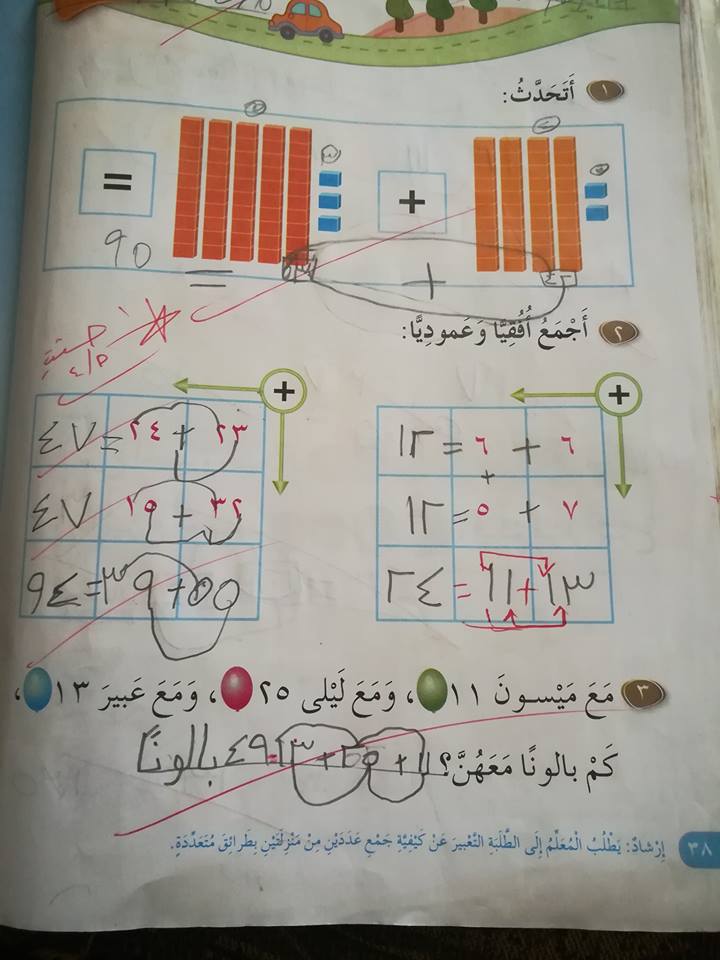 ١ أَتَحَدَّثُ:
+ =
٩٥
+ =
٢ أَجْمَعُ أُفُقِيًّا وَعَمودِيًّا:
+
٦ + ٦ = ١٢
٧ + ٥ = ١٢
١٣ + ١١ = ٢٤
+
٢٣ + ٢٤ = ٤٧
٣٢ + ١٥ = ٤٧
٥٥ + ٣٩ = ٩٤
٣ مَعَ مَيْسونَ ١١ ، وَمَعَ لَيْلى ٢٥ ، وَمَعَ عَبيرَ ١٣ ،
كَمْ بالونًا مَعَهُنَّ؟ ١١ + ٢٥ + ١٣ = ٤٩ بالونًا
٣٨ إِرْشادٌ: يَطْلُبُ الْمُعَلِّمُ إِلى الطَّلَبَةِ التَّعْبيرَ عَنْ كَيْفِيَّةِ جَمْعِ عَدَدَيْنِ مِنْ مَنْزِلَتَيْنِ بِطَرائِقَ مُتَعَدِّدَةٍ.